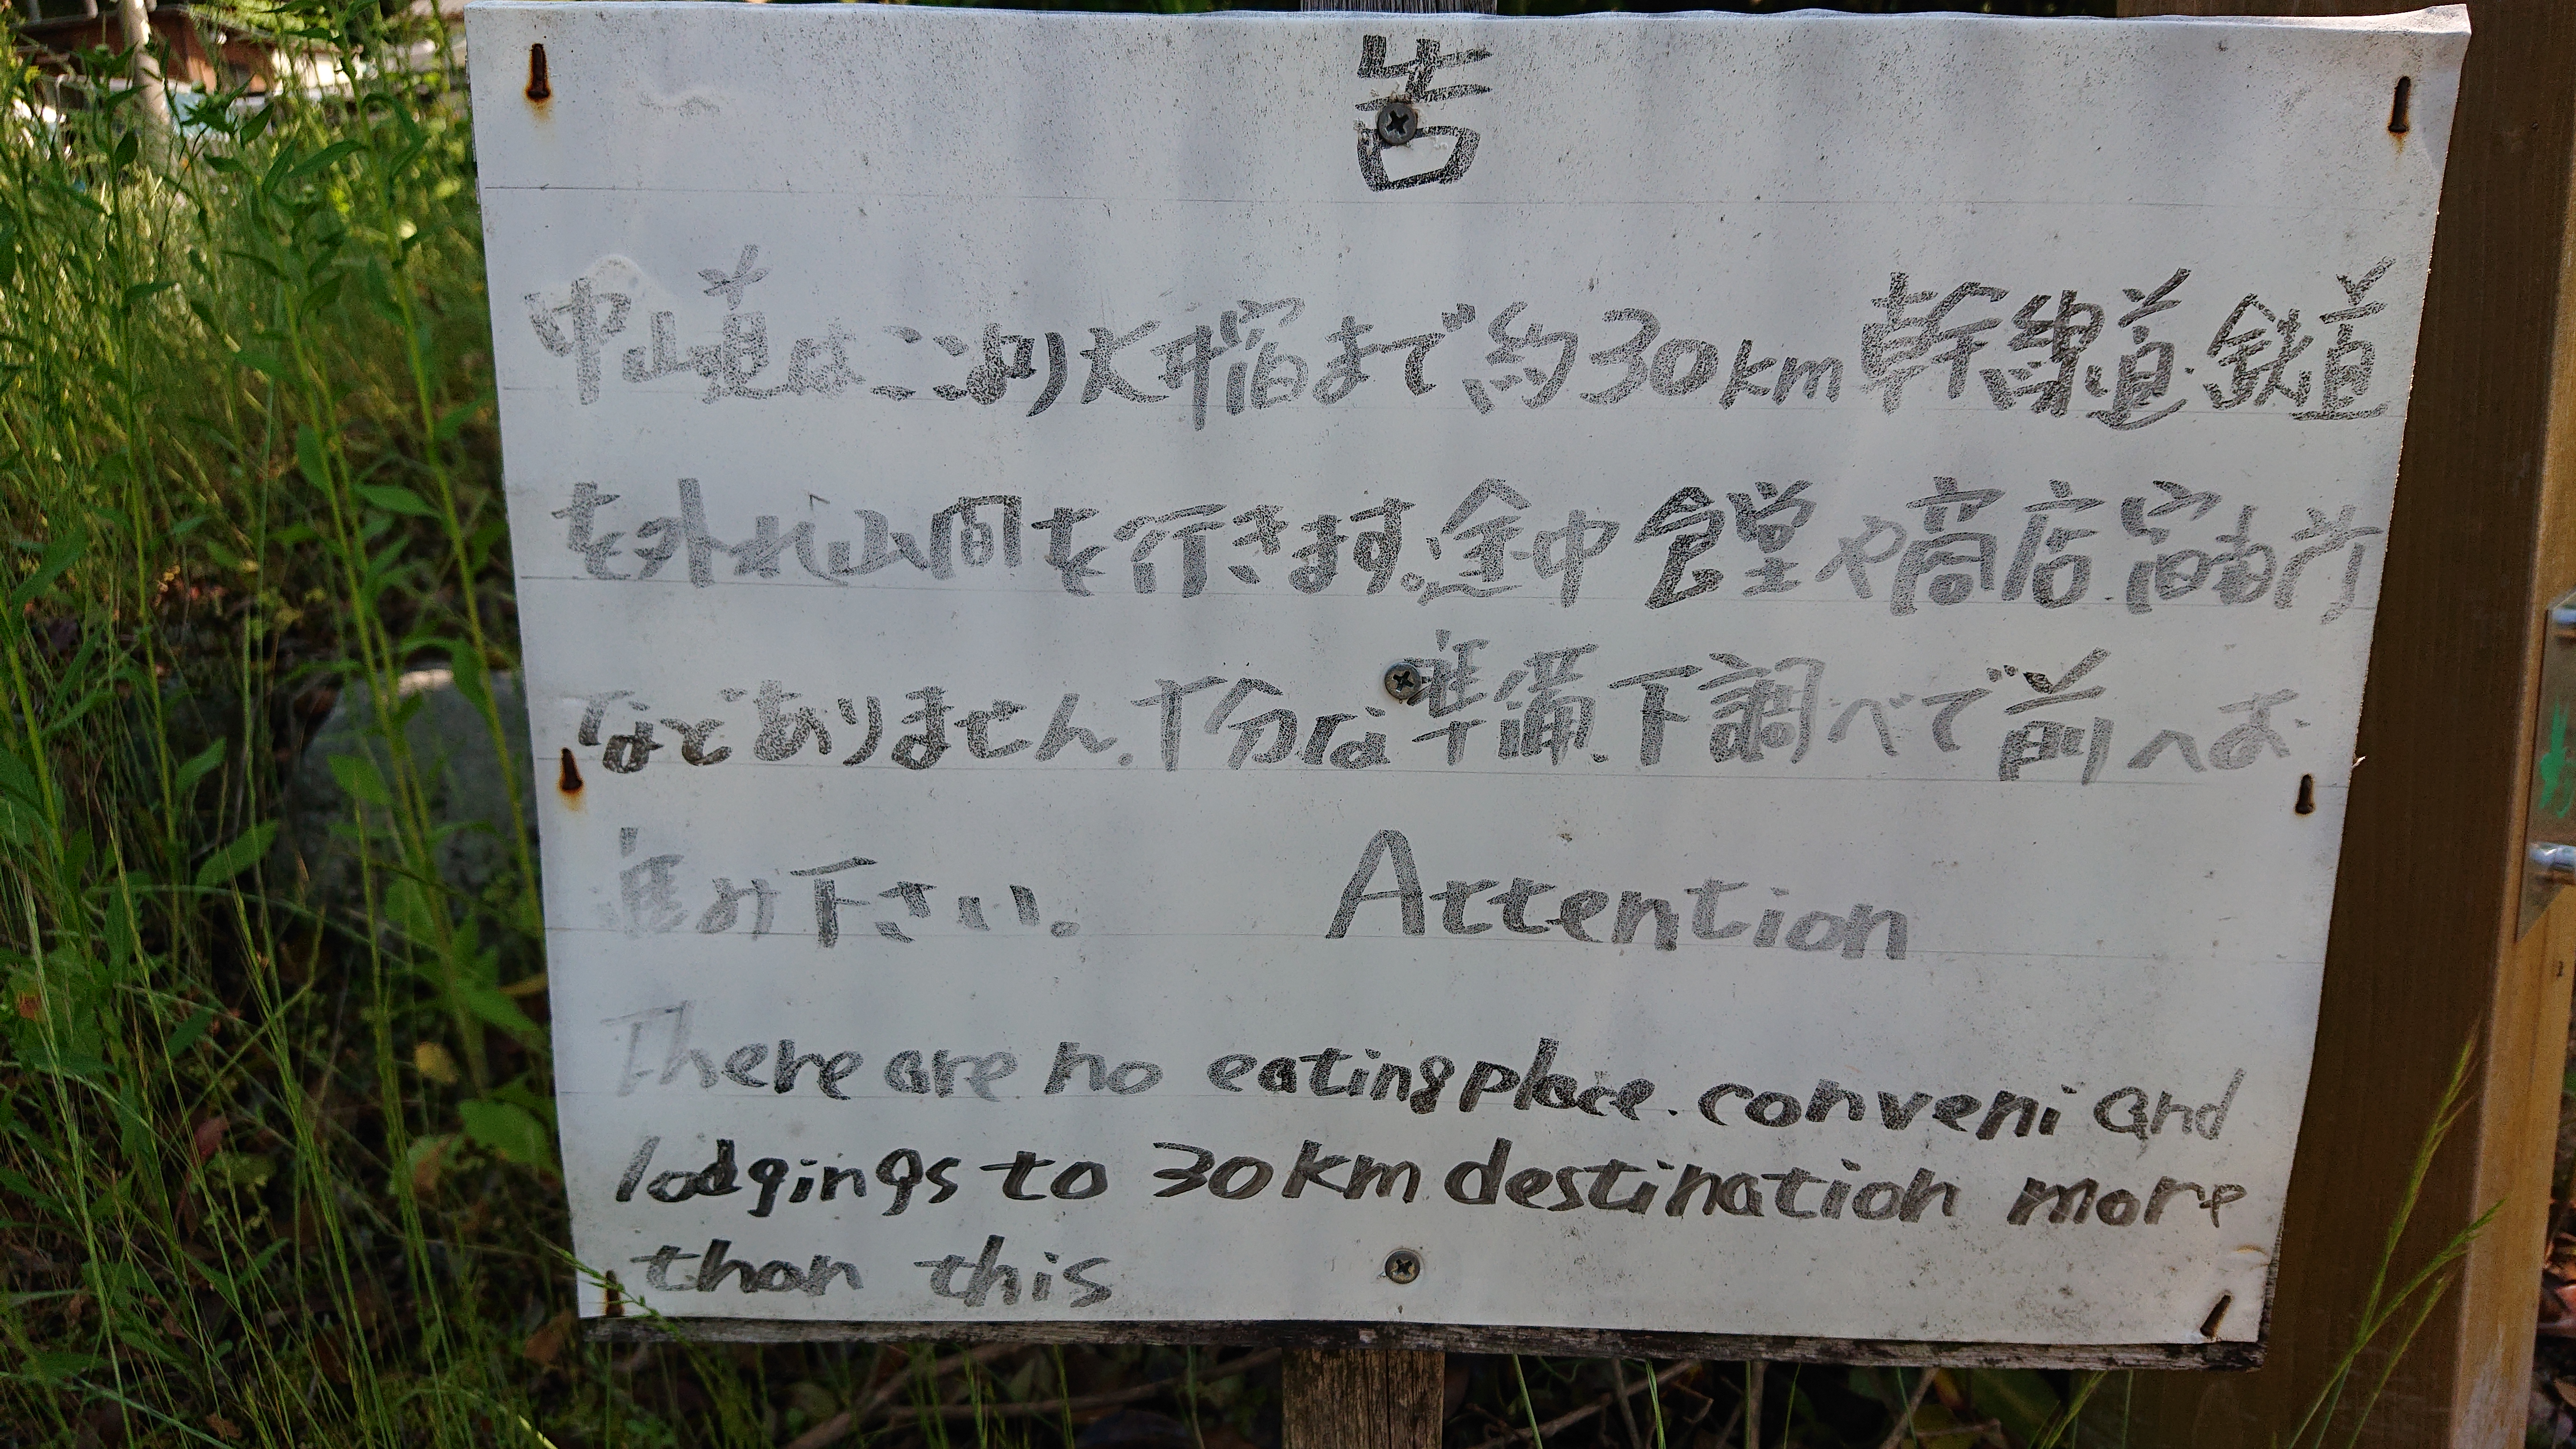 告
中山道はここより大井宿まで約30km幹線道.鉄道
を外れ山間を行きます。途中食堂や商店.宿泊所
などありません.十分な準備.下調べで前へお
進み下さい。 Attention
There are no eating place. conveni and
lodgings to 30km destination more
than this